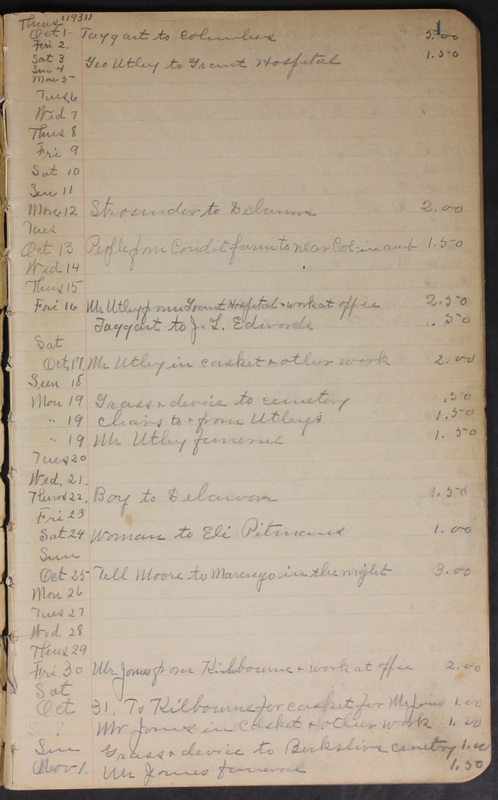 Thurs "1931" 1
Oct 1 Taggart to Columbus 5.00
Fri 2
Sat 3 Geo Utley to Grant Hospital 1.50
Sun 4
Mon 5
Tues 6
Wed 7
Thurs 8
Fri 9
Sat 10
Sun 11
Mon 12 Strosnider to Delaware 2.00
Tues
Oct 13 People from Condit farm to near Col- in amb 1.50
Wed 14
Thurs 15
Fri 16 Mr Utley from Grant Hospital + work at office 2.50
Taggart to J. L. Edwards .50
Sat
Oct, 17, Mr Utley in casket + other work 2.00
Sun 18
Mon 19 Grass + device to cemetery .50
" 19 Chairs to + from Utley's 1.50
" 19 Mr Utley funeral 1.50
Tues 20
Wed, 21.
Thurs 22, Boy to Delaware 1.50
Fri 23
Sat 24 Woman to Eli Pitmans 1.00
Sun
Oct 25 Tell Moore to Marengo in the night 3.00
Mon 26
Tues 27
Wed 28
Thurs 29
Fri 30 Mr Jones from Kilbourne + work at office 2.00
Sat
Oct 31. To Kilbourne for casket for Mr Jones 1.00
Mr Jones in casket + other work 1.00
Sun Grass + device to Berkshire cemetery 1.00
Nov 1. Mr Jones funeral 1.50